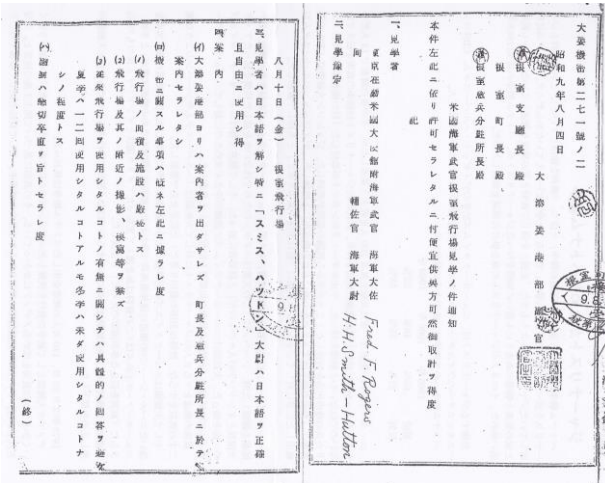 大湊要機密第二七一號ノ二
昭和九年八月四日
大湊要港部副官
根室支廳長殿
根室町長殿
根室憲兵分駐所長殿
米國海軍武官根室飛行場見學ノ件通知
本件左記ニ依リ許可セラレタルニ付便宜供與方可然御取計ヲ得度
記
一、見學者
東京在勤米國大使館附海軍武官 海軍大佐 Fred F. Rogers
同 輔佐官 海軍大尉 H.H.Smith-Hutton
二、見學豫定
八月十日(金) 根室飛行場
三、見學者ハ日本語ヲ解シ特ニ「スミス、ハットン」大尉ハ日本語ヲ正確
且自由ニ使用シ得
四、案内
(イ)大湊要港部ヨリハ案内者ヲ出ダサレズ 町長及憲兵分駐所長ニ於テ
案内セラレタシ
(ロ)機密ニ關スル事項ハ概ネ左記ニ據ラレ度
(1)飛行場ノ面積及施設ハ嚴秘トス
(2)飛行場及其ノ附近ノ撮影、模寫等ヲ禁ズ
(3)從來飛行場ヲ使用シタルコトノ有無ニ關シテハ具體的ノ回答ヲ避ケ
夏季ハ一二回使用シタルコトアルモ冬季ハ未ダ使用シタルコトナ
シノ程度トス
旨トセラレ度
(終)